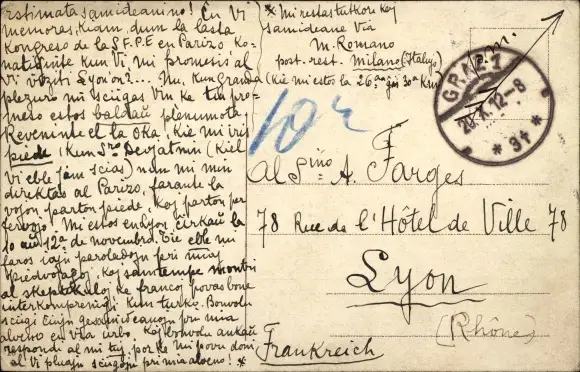 Estimata samideanino! Ĉu Vi
memoras, kiam dum la lasta
Kongreso de la S.F.P.E en Parizo, ko-
natiĝinte kun Vi mi promesis al
vi viziti Lyon'on?... Nu, kun granda
plezuro mi sciigas Vin ke tiu pro-
meso estos baldaŭ plenumota.
Reveninte el la Oka, kie mi iris
piede (kun Sro Devjatnin (kiel
Vi eble jam scias) nun mi iras
direktas al Parizo, farante la
vojon parton piede, kaj parton per
fervojo. Mi estos en Lyon ĉirkaŭ la
10 aŭ 12a de novembro. Tie eble mi
faros iajn paroladojn pri miaj
piedvojaĝoj, kaj samtempe montri
al skeptikuloj ke franco povas bone
interkompreniĝi kun turko. Bonvolu
sciigi ĉiujn gesamideanojn pri mia
alveno en via urbo. Kaj bonvolu ankaŭ
respondi al mi tuj, por ke mi povu doni
al Vi pluajn sciigojn pri mia alveno! *
* Mi restas tutkore kaj
samideane Via
M. Romano
post. rest. Milano (Italujo)
(Kie mi estos la 26a ĝis 30a Km)
p.m.
GRAZ 1
X. 12-8
* 9f *
Al Sino A. Farges
78 Rue de l'Hôtel de Ville 78
Lyon
(Rhône)
Frankreich